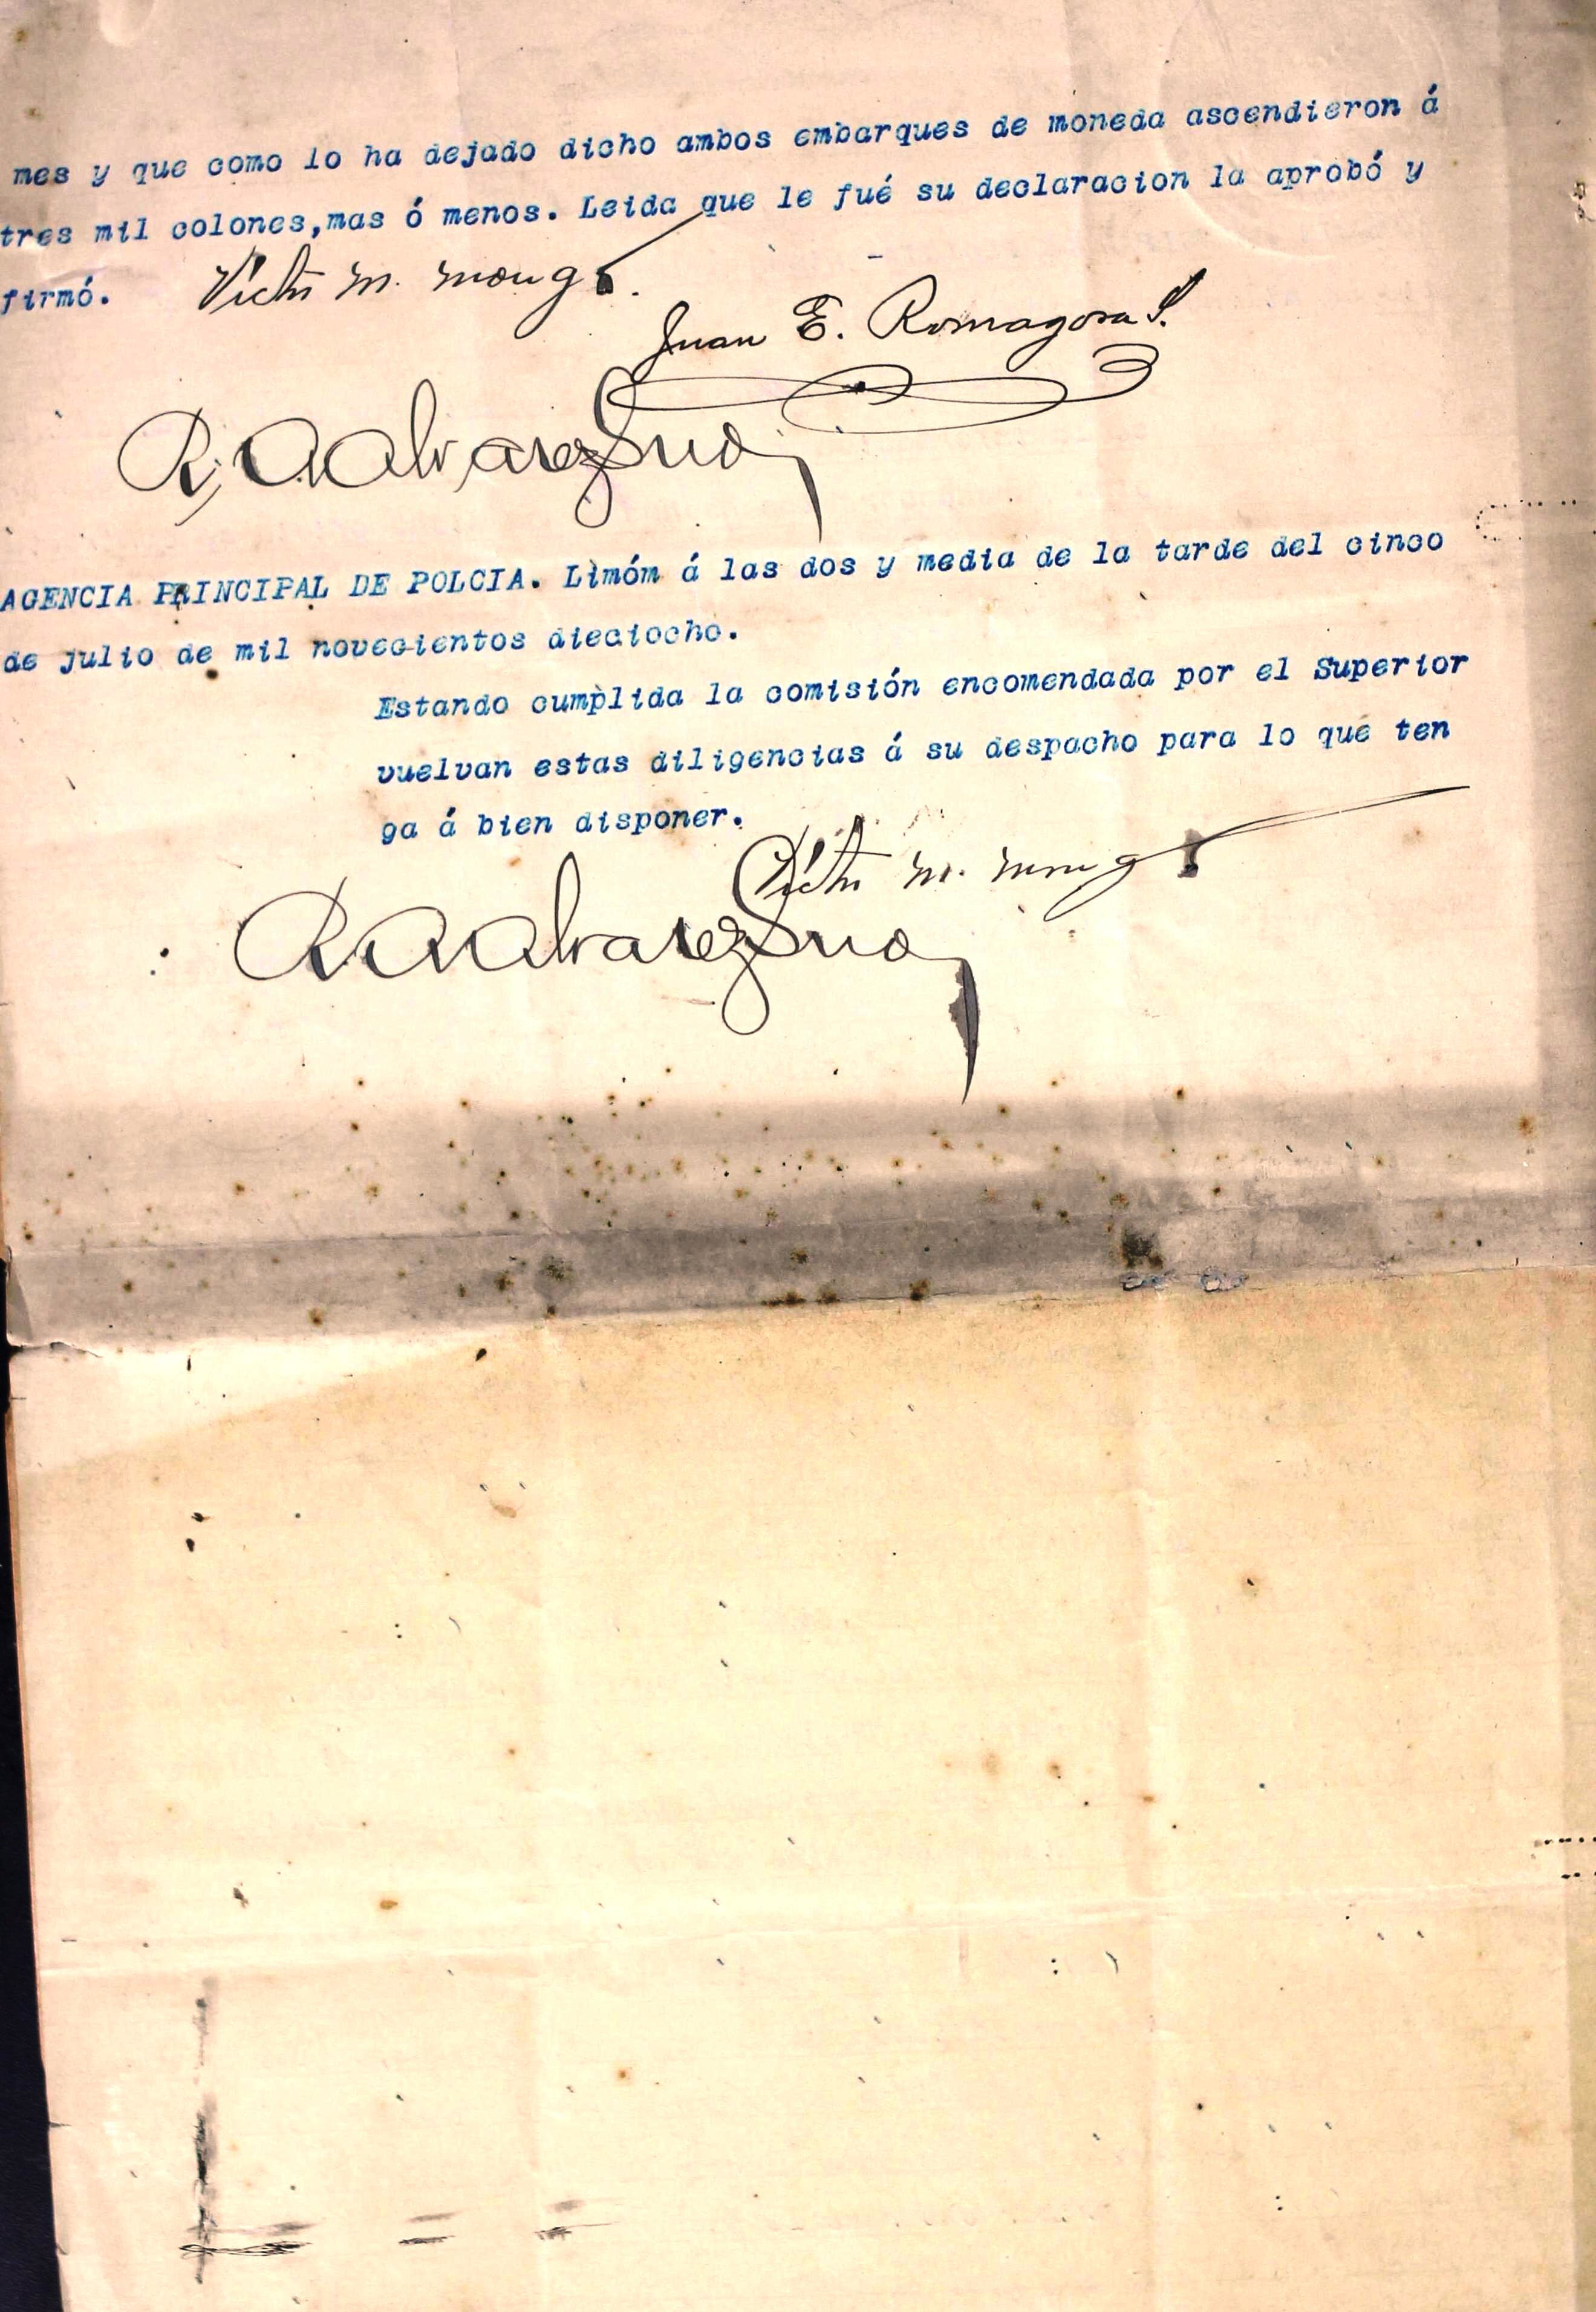 mes y que como lo ha dejado dicho ambos embarques de moneda ascendieron á
tres mil colones,mas ó menos. Leida que le fué su declaracion la aprobó y
firmó. Victr M. Monge.
Juan E. Romagosa S.
R. A Alvarez Srio
AGENCIA PRINCIPAL DE POLCIA. Limóm á las dos y media de la tarde del cinco
de julio de mil novecientos dieciocho.
Estando cumplida la comisión encomendada por el Superior
vuelvan estas diligencias á su despacho para lo que ten
ga á bien disponer.
Victr M. Monge
R. A Alvarez Srio